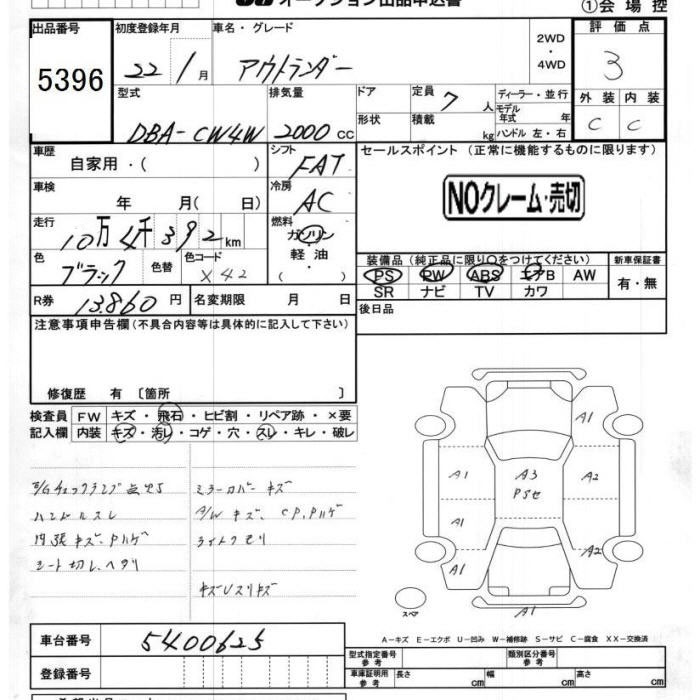 オークション出品申込書
①会場控
出品番号 初度登録年月 車名・グレード 評価点
5396 22/1月 アウトランダー 2WD・4WD 3
型式 排気量 ドア 定員 7人 ディーラー・並行 外装 内装
DBA-CW4W 2000cc 形状 積載 kg モデル年式 年 ハンドル 左・右 C C
車歴 シフト セールスポイント（正常に機能するものに限ります）
自家用・( ) FAT
車検 冷房 NOクレーム・売切
年 月( 日) AC
走行 燃料
10万4千392km ガソリン
軽油・
色 色替 色コード 装備品（純正品に限り○をつけてください） 新車保証書
ブラック X42 PS PW ABS エアB AW 有・無
SR ナビ TV カワ
R券 13,860円 名変期限 月 日 後日品
注意事項申告欄(不具合内容等は具体的に記入して下さい)
修復歴 有〔箇所 〕
検査員 FW キズ・飛石・ヒビ割・リペア跡・×要
記入欄 内装 キズ・汚レ・コゲ・穴・スレ・キレ・破レ
E/Gチェックランプ点灯 ミラーカバーキズ
ハンドルスレ A/Wキズ、CP,Pハゲ
内張キズ、Pハゲ ライトクモリ
シート切レ、ヘタリ
キズUスリキズ
A1
A1 A3 A2
A1
A2
A1
スペア
A1
A－キズ E－エクボ U－凹み W－補修跡 S－サビ C－腐食 XX－交換済
車台番号 5400625
型式指定番号 参考 類別区分番号 参考
登録番号 車庫証明用 参考 長さ cm 幅 cm 高さ cm